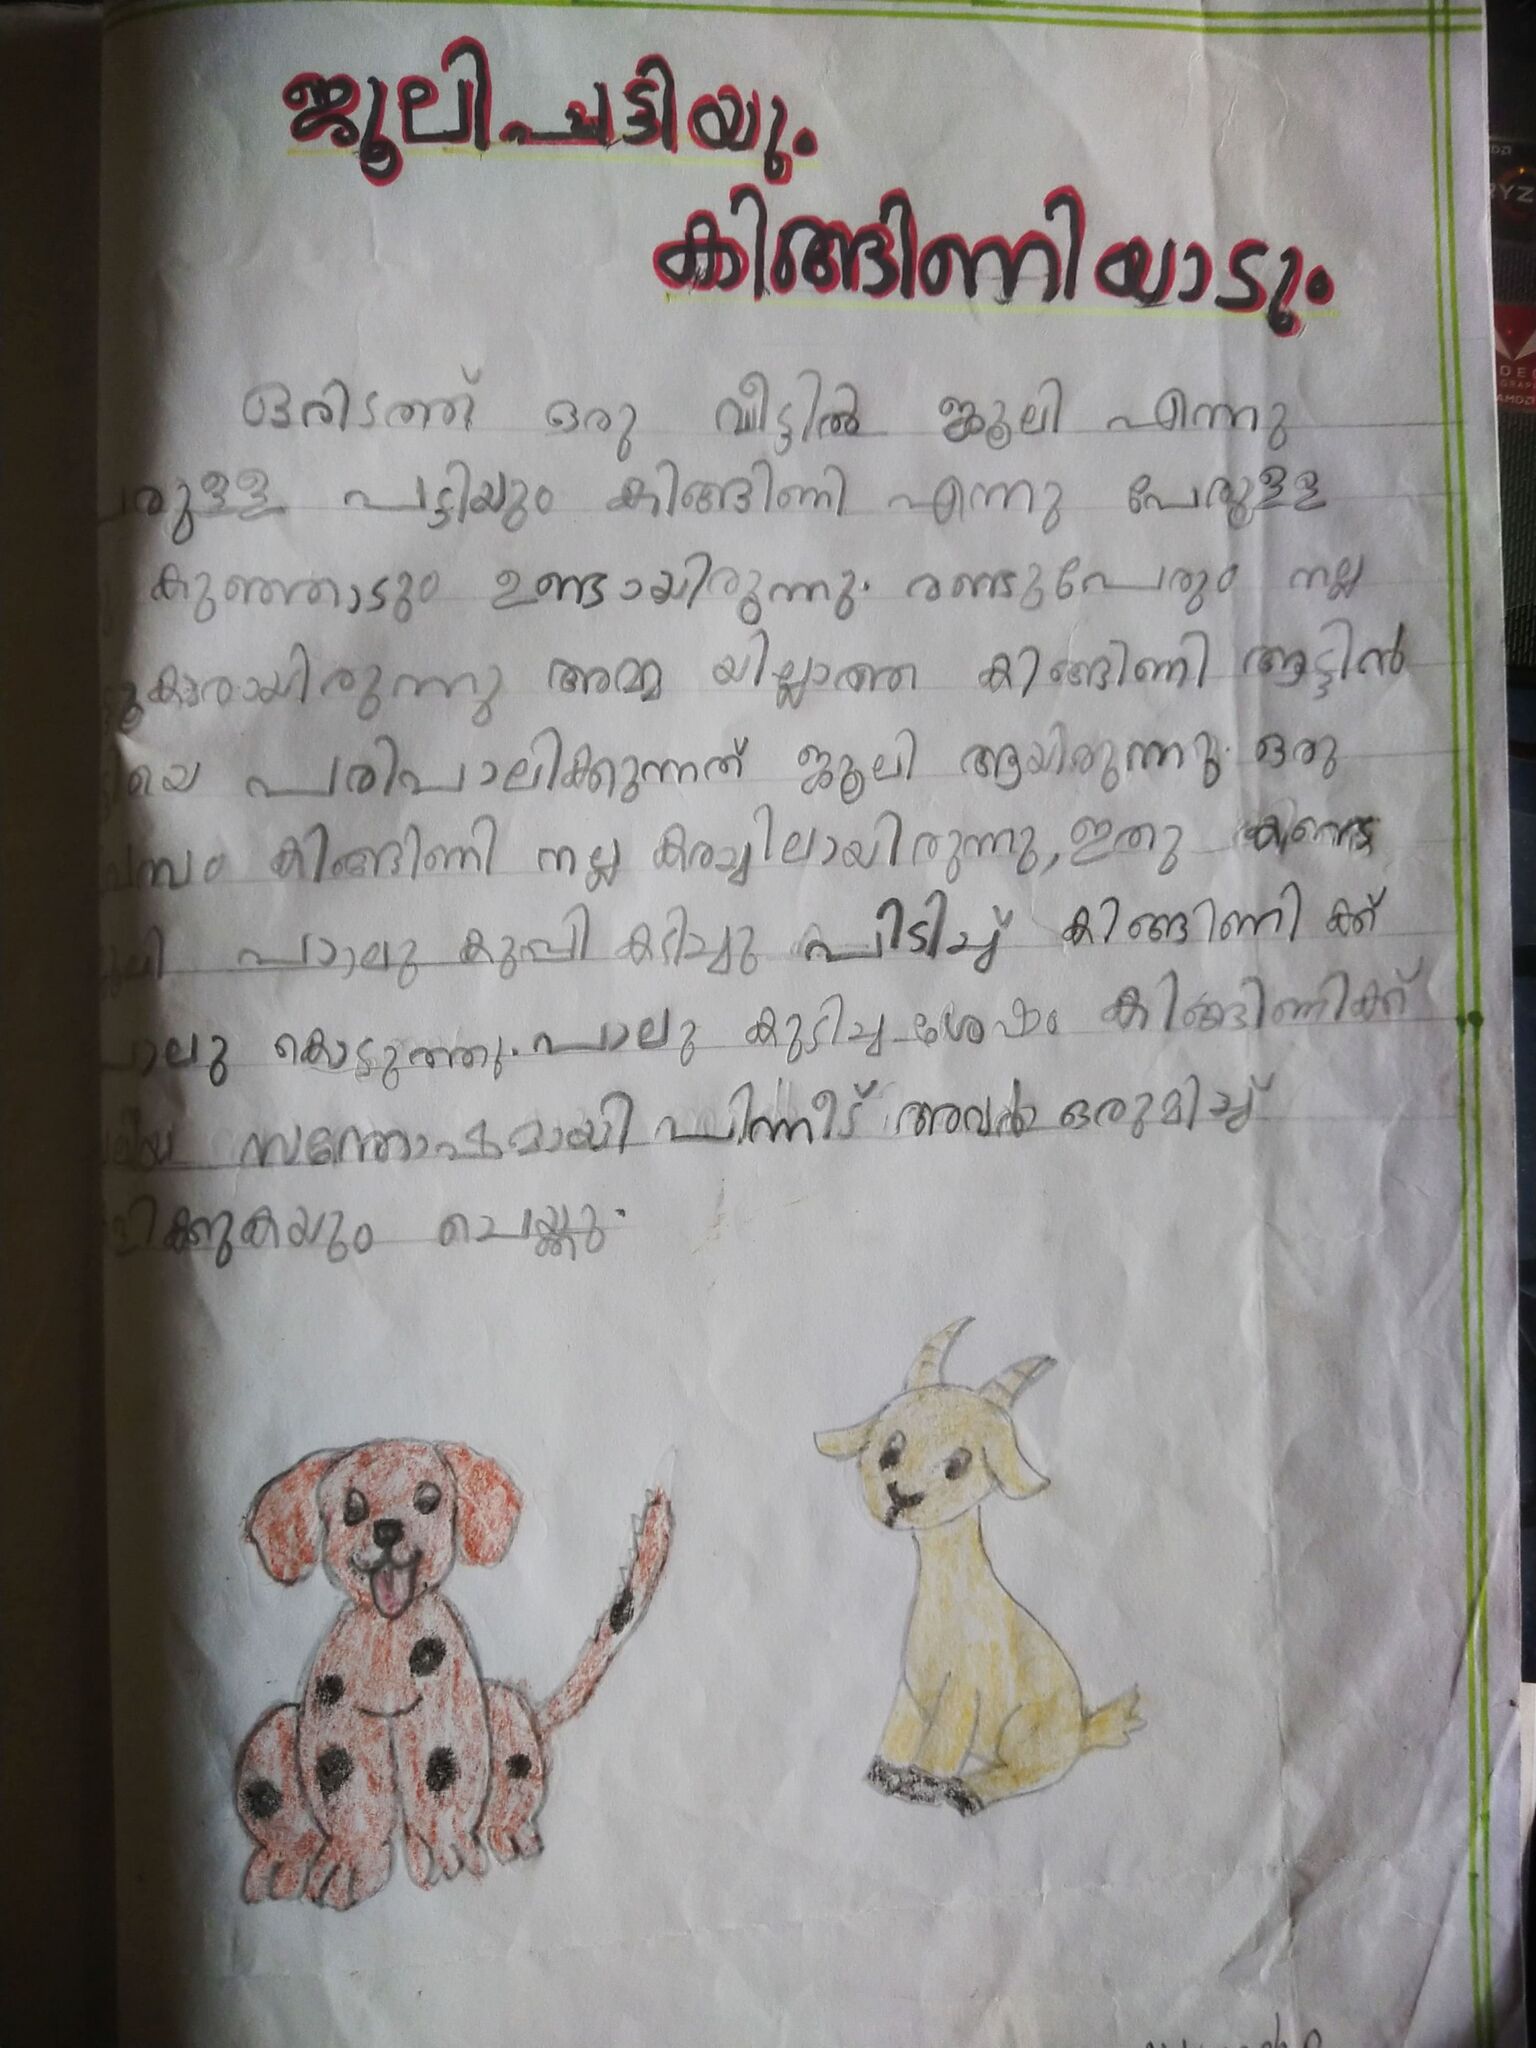 ജൂലി പട്ടിയും
കിങ്ങിണിയാടും
ഒരിടത്ത് ഒരു വീട്ടിൽ ജൂലി എന്നു
പട്ടിയും കിങ്ങിണി എന്നു പേരുള്ള
കുഞ്ഞാടും ഉണ്ടായിരുന്നു. രണ്ടുപേരും നല്ല
അമ്മ യില്ലാത്ത കിങ്ങിണി ആട്ടിൻ
പരിപാലിക്കുന്നത് ജൂലി ആയിരുന്നു. ഒരു
കിങ്ങിണി നല്ല കരച്ചിലായിരുന്നു, ഇതു
പാലു കുപ്പി കടിച്ചു പിടിച്ച് കിങ്ങിണി ക്ക്
പാലു കൊടുത്തു. പാലു കുടിച്ച ശേഷം കിങ്ങിണിക്ക്
സന്തോഷമായി പിന്നീട് അവർ ഒരുമിച്ച്
ചെയ്തു.